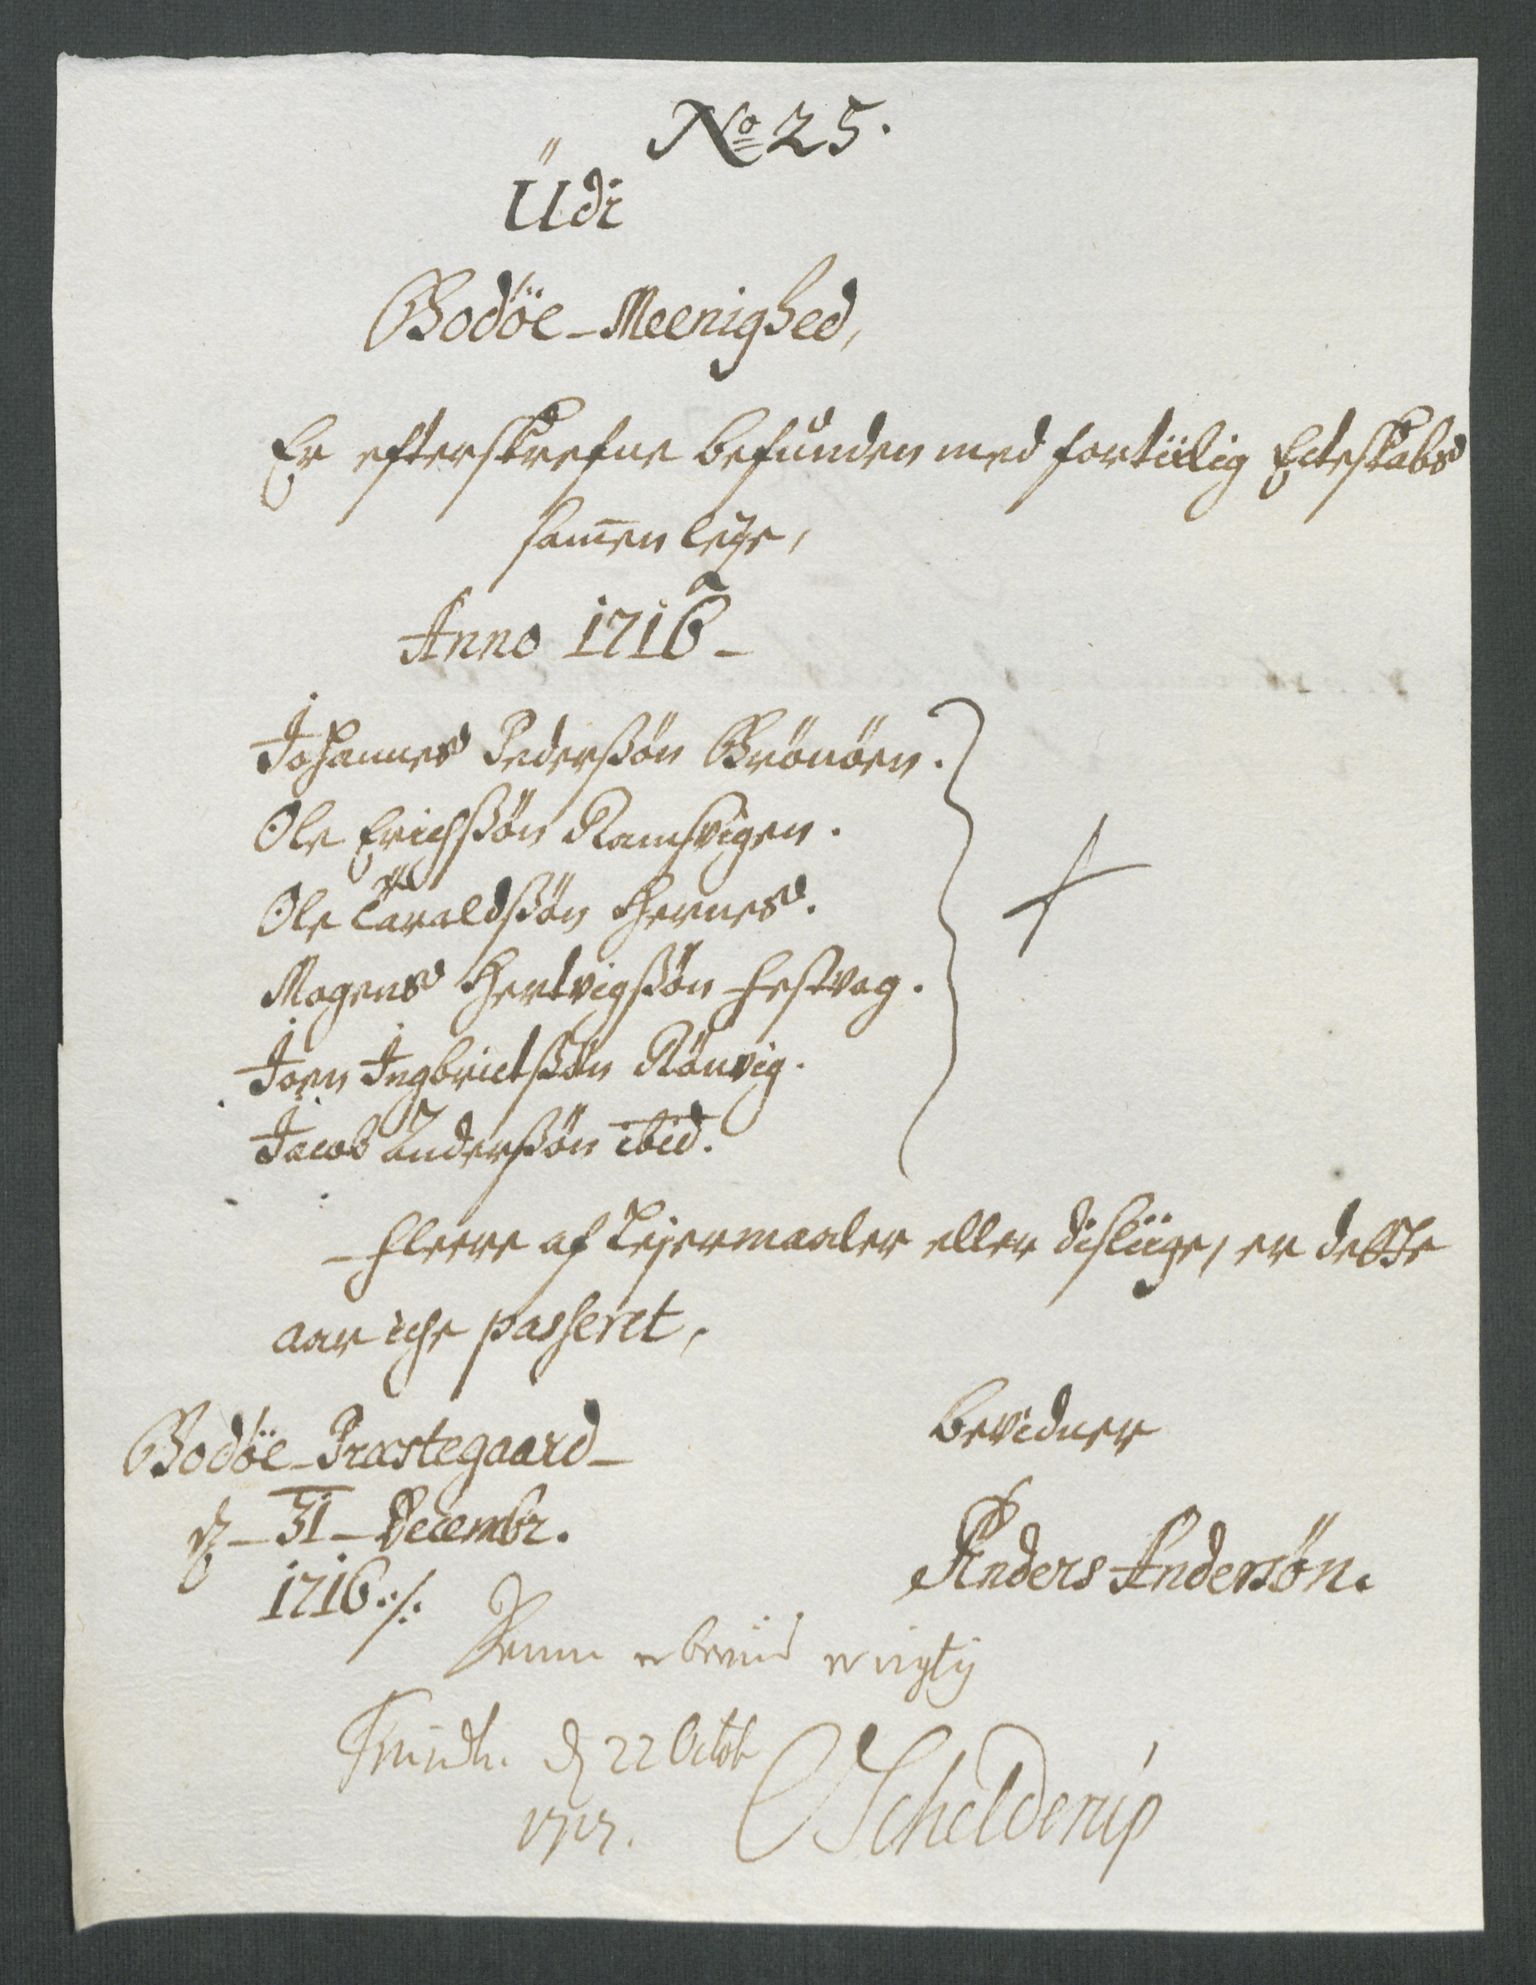 No 25.
Üdi
Bodöe-Meenighed,
Er efterskrefne befunden med fortiilig Ecteskabs
sam̄en leye,
Anno 1716 -
Johannes Pederssön Brönöen.
Ole Erichssön Ramsvigen.
Ole Taraldssön Hernes.
Mogens Hertvigssön Festvog.
Joen Ingbrictssön Rönvig.
Jacob Anderssön ibid.
- Fleere af Lejermaaler eller disliige, er dette
aar iche passeret,
Bodöe-Præstegaard-
d - 31 - Decembr.
1716 ./.
bevidner
Anders Andersön.
er rigtig
Trundh. d 22 Octob
1717.
Schelderup